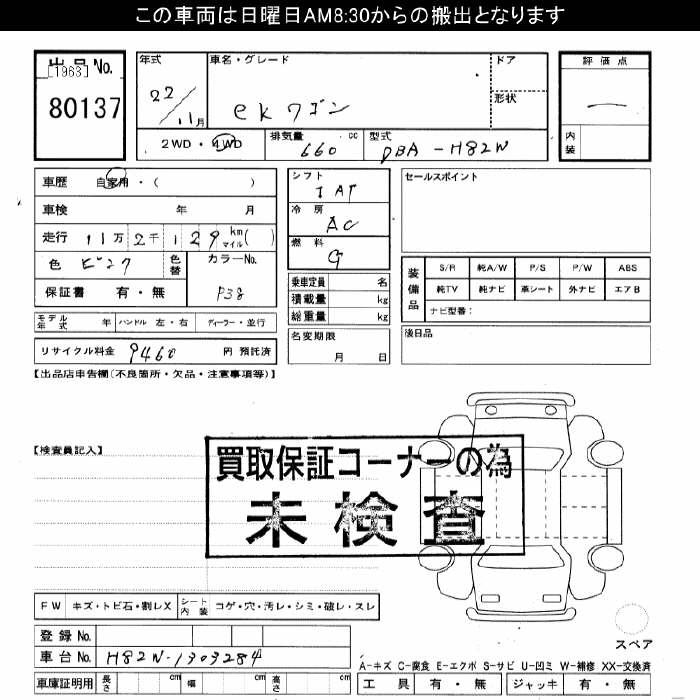 この車両は日曜日AM8:30からの搬出となります
出品No.
[1963]
80137
年式
22/11月
車名・グレード
ekワゴン
ドア
形状
評価点
―
内装
2WD・4WD
排気量 660 cc
型式 DBA-H82W
車歴 自家用・( )
車検 年 月
走行 11万2千129km マイル( )
色 ピンク 色替
カラーNo. P38
保証書 有・無
シフト
IAT
冷房
AC
燃料
G
乗車定員 名
積載量 kg
総重量 kg
セールスポイント
装備品
S/R 純A/W P/S P/W ABS
純TV 純ナビ 革シート 外ナビ エアB
ナビ型番:
モデル年式 年 ハンドル 左・右 ディーラー・並行
名変期限
月 日
後日品
リサイクル料金 9460 円 預託済
【出品店申告欄(不良箇所・欠品・注意事項等)】
【検査員記入】
買取保証コーナーの為
未検査
FW キズ・トビ石・割レX シート内装 コゲ・穴・汚レ・シミ・破レ・スレ
登録No.
車台No. H82W-1303284
スペア
A-キズ C-腐食 E-エクボ S-サビ U-凹ミ W-補修 XX-交換済
車庫証明用 長さ cm 幅 cm 高さ cm
工具 有・無 ジャッキ 有・無